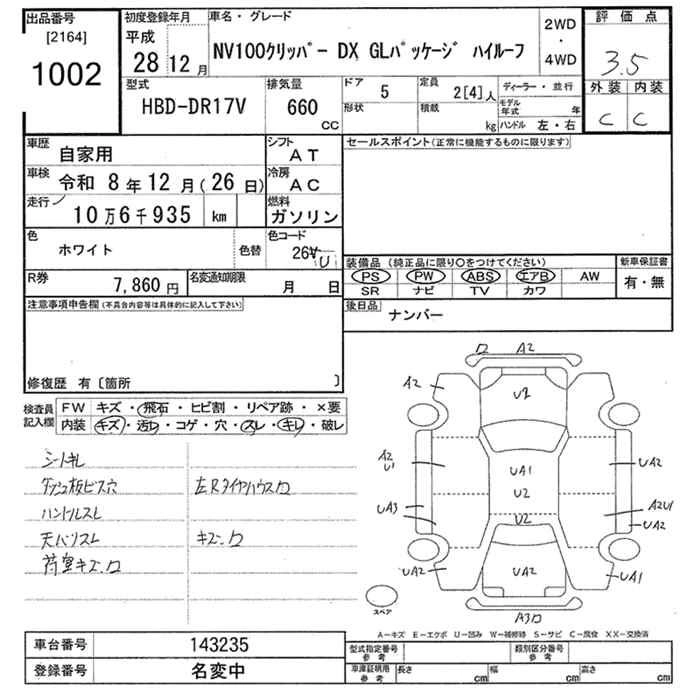 出品番号
[2164]
1002
初度登録年月
平成
28 12 月
車名・グレード
NV100クリッパー DX GLパッケージ ハイルーフ
2WD
・
4WD
評価点
3.5
外装 内装
C C
型式
HBD-DR17V
排気量
660
CC
ドア 5
形状
定員 2[4]人
積載 kg
ディーラー・並行
モデル年式 年
ハンドル 左・右
車歴 自家用
シフト AT
車検 令和 8年 12月(26日)
冷房 AC
走行 10万6千935 km
燃料 ガソリン
色 ホワイト
色替
色コード
R券 7,860円
名変通知期限 月 日
セールスポイント(正常に機能するものに限ります)
装備品 (純正品に限り○をつけてください)
新車保証書
PS PW ABS エアB AW
有・無
SR ナビ TV カワ
後日品 ナンバー
注意事項申告欄(不具合内容等は具体的に記入して下さい)
修復歴 有〔箇所 〕
検査員記入欄
FW キズ・飛石・ヒビ割・リペア跡・×要
内装 キズ・汚レ・コゲ・穴・スレ・キレ・破レ
シートキレ
ダッシュ板ビス穴 左Rタイヤハウスロ
ハンドルスレ
天バリスレ キズ、ロ
荷室キズ、ロ
ロ A2
A2
U2
A2
U1
UA1
UA2
U2
UA3
U2
A2U1
UA2
UA2
UA2
UA1
A3ロ
スペア
A-キズ E-エクボ U-凹み W-補修跡 S-サビ C-腐食 XX-交換済
車台番号 143235
登録番号 名変中
型式指定番号
参考
類別区分番号
参考
車庫証明用
参考
長さ cm
幅 cm
高さ cm